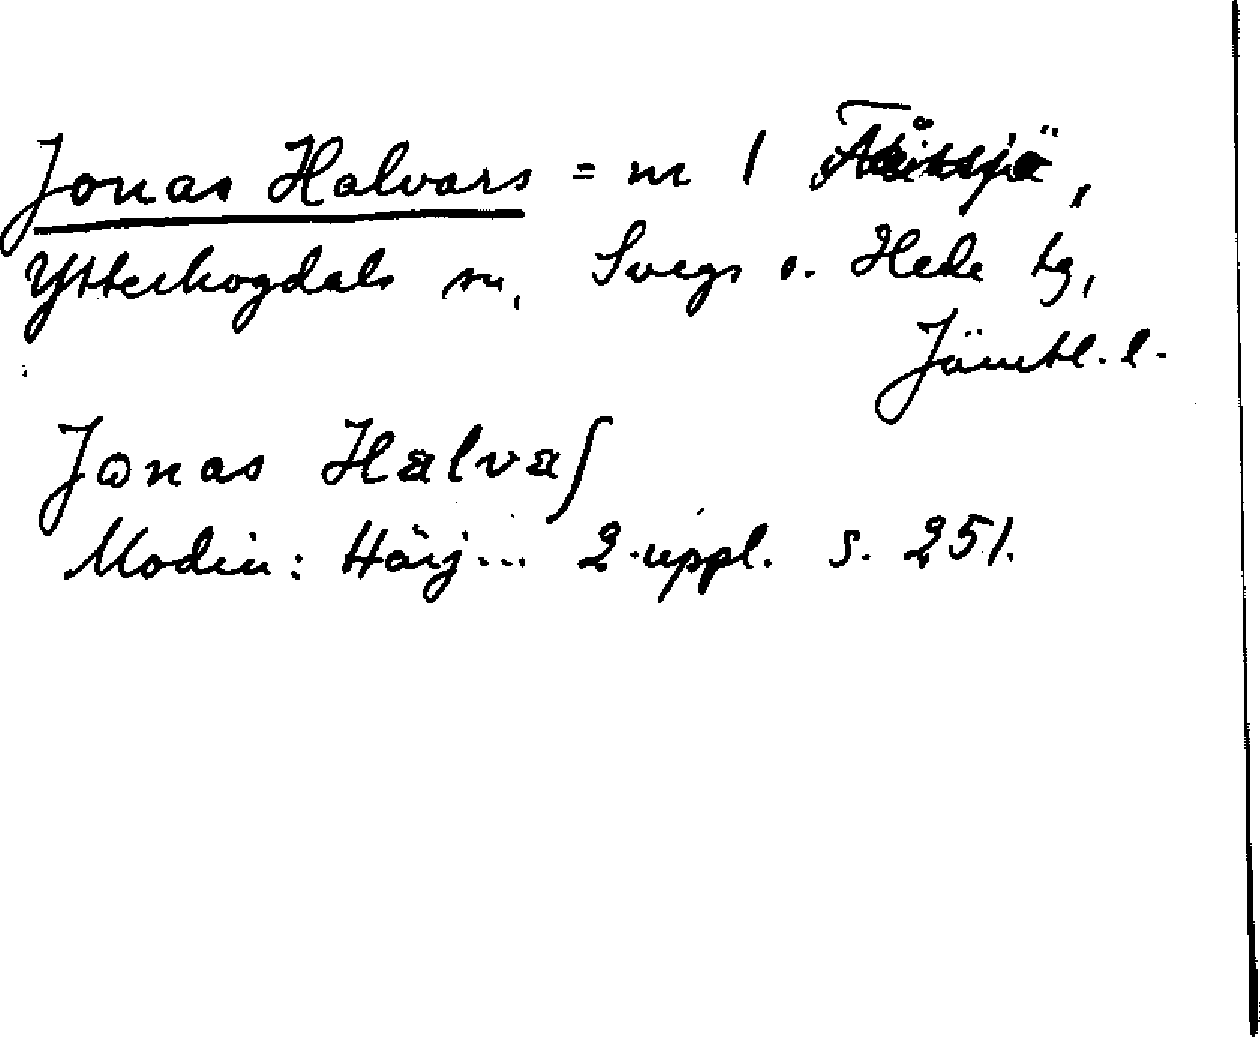 Jonas Halvars = m 1
Ytterhogdals sn, Svegs o. Hede tg,
Jämtl. l.
Jonas Halvaʃ
Modin: Härj... 2. uppl. s. 251.